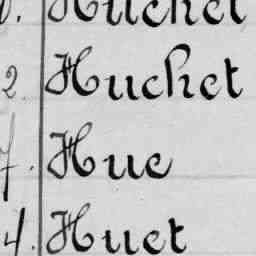 Huchet
2. Huchet
7. Hue
4. Huet